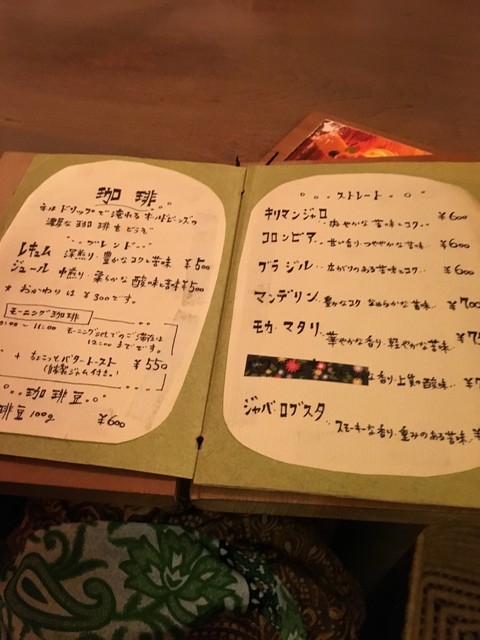 珈琲
ネルドリップで淹れるオールドビーンズの
濃厚な珈琲をどうぞ
ブレンド
レキュム 深煎り 豊かなコクと苦味 ¥500
ジュール 中煎り 柔らかな酸味と苦味 ¥500
* おかわりは ¥300です。
モーニング珈琲
〜 11:00 モーニングsetでのご滞在は
12:00までです。
+ ちょこっとバタートースト ¥550
(自製ジャム付き)
珈琲豆
琲豆 100g ¥600
ストレート
キリマンジャロ
爽やかな苦味とコク ¥600
コロンビア 甘い香り つややかな苦味 ¥600
ブラジル 広がりのある苦味とコク ¥600
マンデリン 豊かなコク なめらかな苦味 ¥700
モカ マタリ
華やかな香り 軽やかな苦味
な香り 上質の酸味
ジャバ・ロブスタ
スモーキーな香り 重みのある苦味